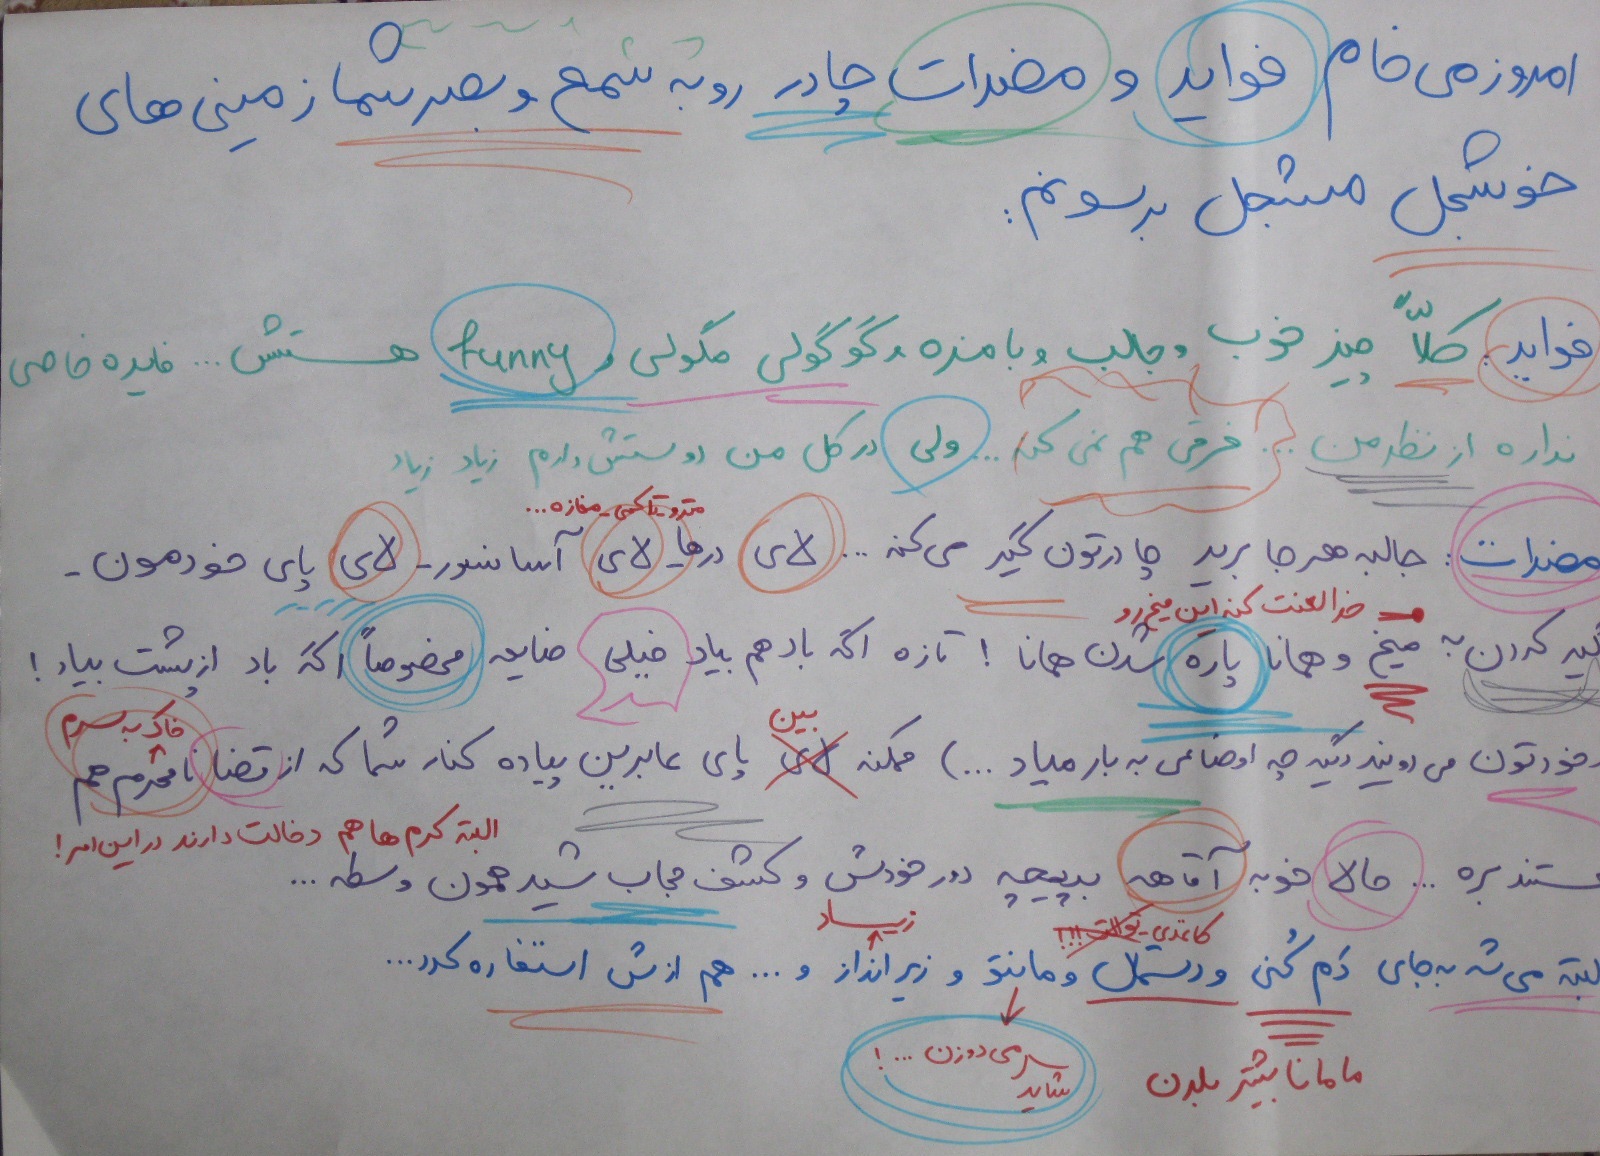 امروز می خام فواید و مضرات چادر رو به شمع و بصر شما زمینی های
خوشجل مشجل برسونم:
فواید: کلاً چیز خوب و جالب و بامزه و گوگولی مگولی و funny هستش... فایده خاصی
نداره از نظر من ... فرقی هم نمی کنه ... ولی در کل من دوستش دارم زیاد زیاد
مترو - تاکسی - مغازه ...
مضرات: جالبه هر جا برید چادرتون گیر می کنه ... لای درها - لای آسانسور - لای پای خودمون -
خدا لعنت کنه این میخ رو
گیر کردن به میخ و همانا پاره شدن همانا ! تازه اگه باد هم بیاد خیلی ضایعه مخصوصاً اگه باد از پشت بیاد !
بین
خاک به سرم
خودتون می دونید دیگه چه اوضاعی به بار میاد ...) ممکنه لای پای عابرین پیاده کنار شما که از قضا نامحرم هم
البته کرم ها هم دخالت دارند در این امر!
هستند بره ... حالا خوبه آقاهه بپیچه دور خودش و کشف حجاب شید همون وسطه ...
کاغذی - توالت !!!
زیـــاد
البته می شه به جای دَم کُنی و دستمال و مانتو و زیرانداز و ... هم ازش استفاده کرد...
سر می دوزن ... !
شاید
مامانا بیشتر بلدن